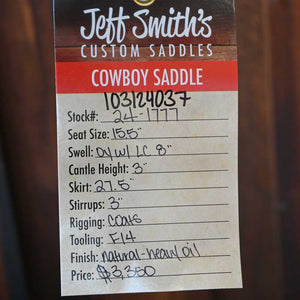 Jeff Smith's
CUSTOM SADDLES
COWBOY SADDLE
103124037
Stock#: 24-1777
Seat Size: 15.5"
Swell: Oy w/ LC 8"
Cantle Height: 3"
Skirt: 27.5"
Stirrups: 3"
Rigging: Coats
Tooling: F14
Finish: natural-heavy oil
Price: $3,350